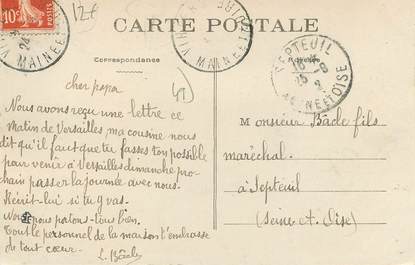 12f
CARTE POSTALE
Correspondance
Adresse
SEPTEUIL
SEINE ET OISE
cher papa
Nous avons reçu une lettre ce
Matin de Versailles, ma cousine nous
dit qu'il faut que tu fasses ton possible
pour venir à Versailles dimanche pro-
chain passer la journée avec nous.
lui si tu y vas.
Nous nous portons tous bien.
Tout le personnel de la maison t'embrasse
de tout cœur. L. Bâcle
Monsieur Bâcle fils
maréchal.
à Septeuil
(Seine et Oise)